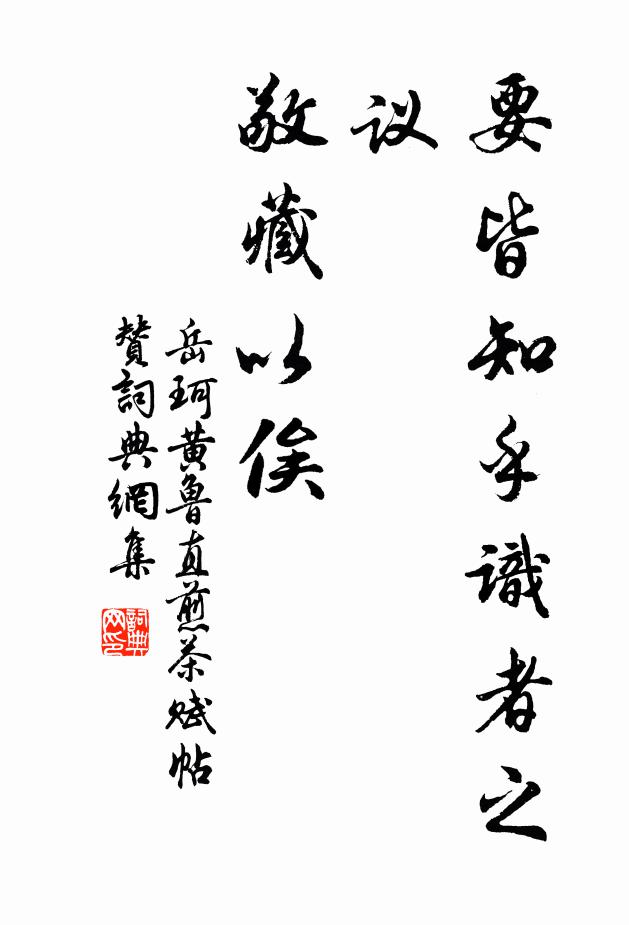 要皆知乎識者之
议
敬藏以俟
岳珂黄魯直煎茶赋帖
贊詞典網集
詞典
网印